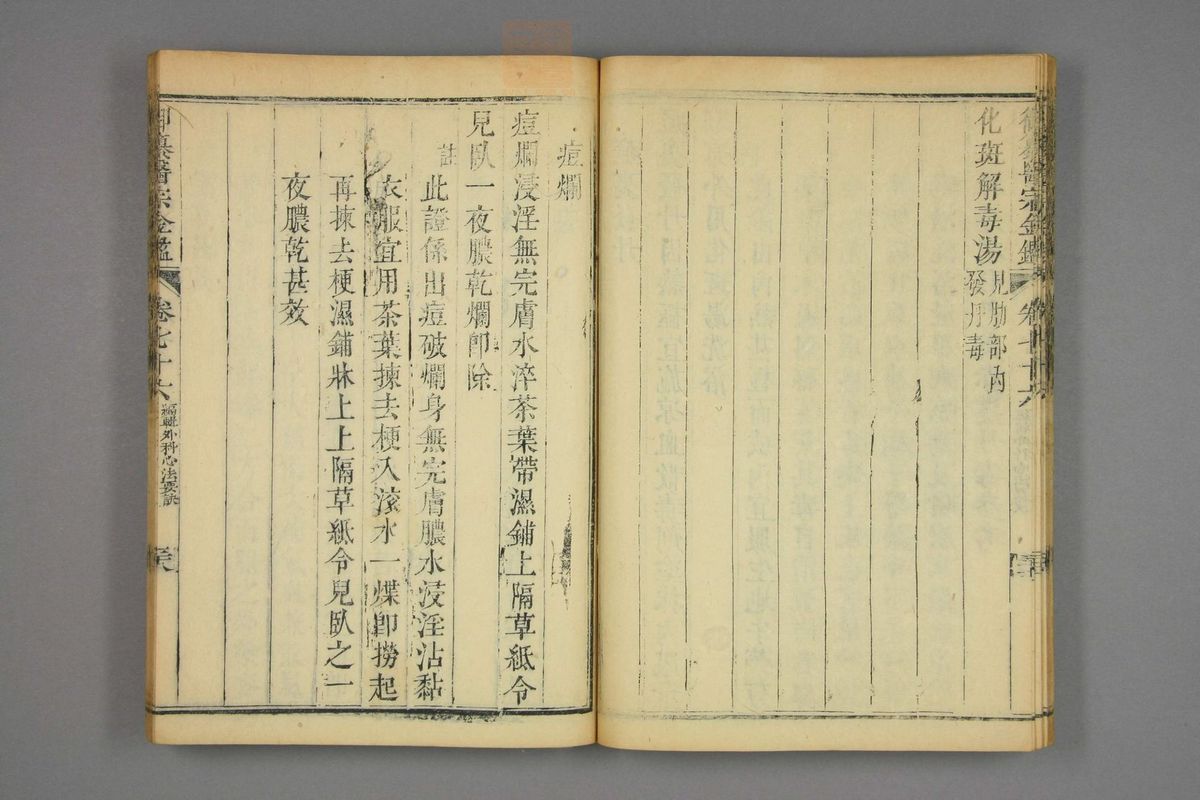 御纂醫宗金鑑
卷七十六
化斑解毒湯 見肋部內
發丹毒
痘爛
痘爛浸淫無完膚水淬茶葉帶濕鋪上隔草紙令
兒臥一夜膿乾爛即除
註 此證係出痘破爛身無完膚膿水浸淫沾黏
衣服宜用茶葉揀去梗入滾水一煠即撈起
再揀去梗濕鋪牀上上隔草紙令兒臥之一
夜膿乾甚效
御纂醫宗金鑑
卷七十六
編輯外科心法要訣